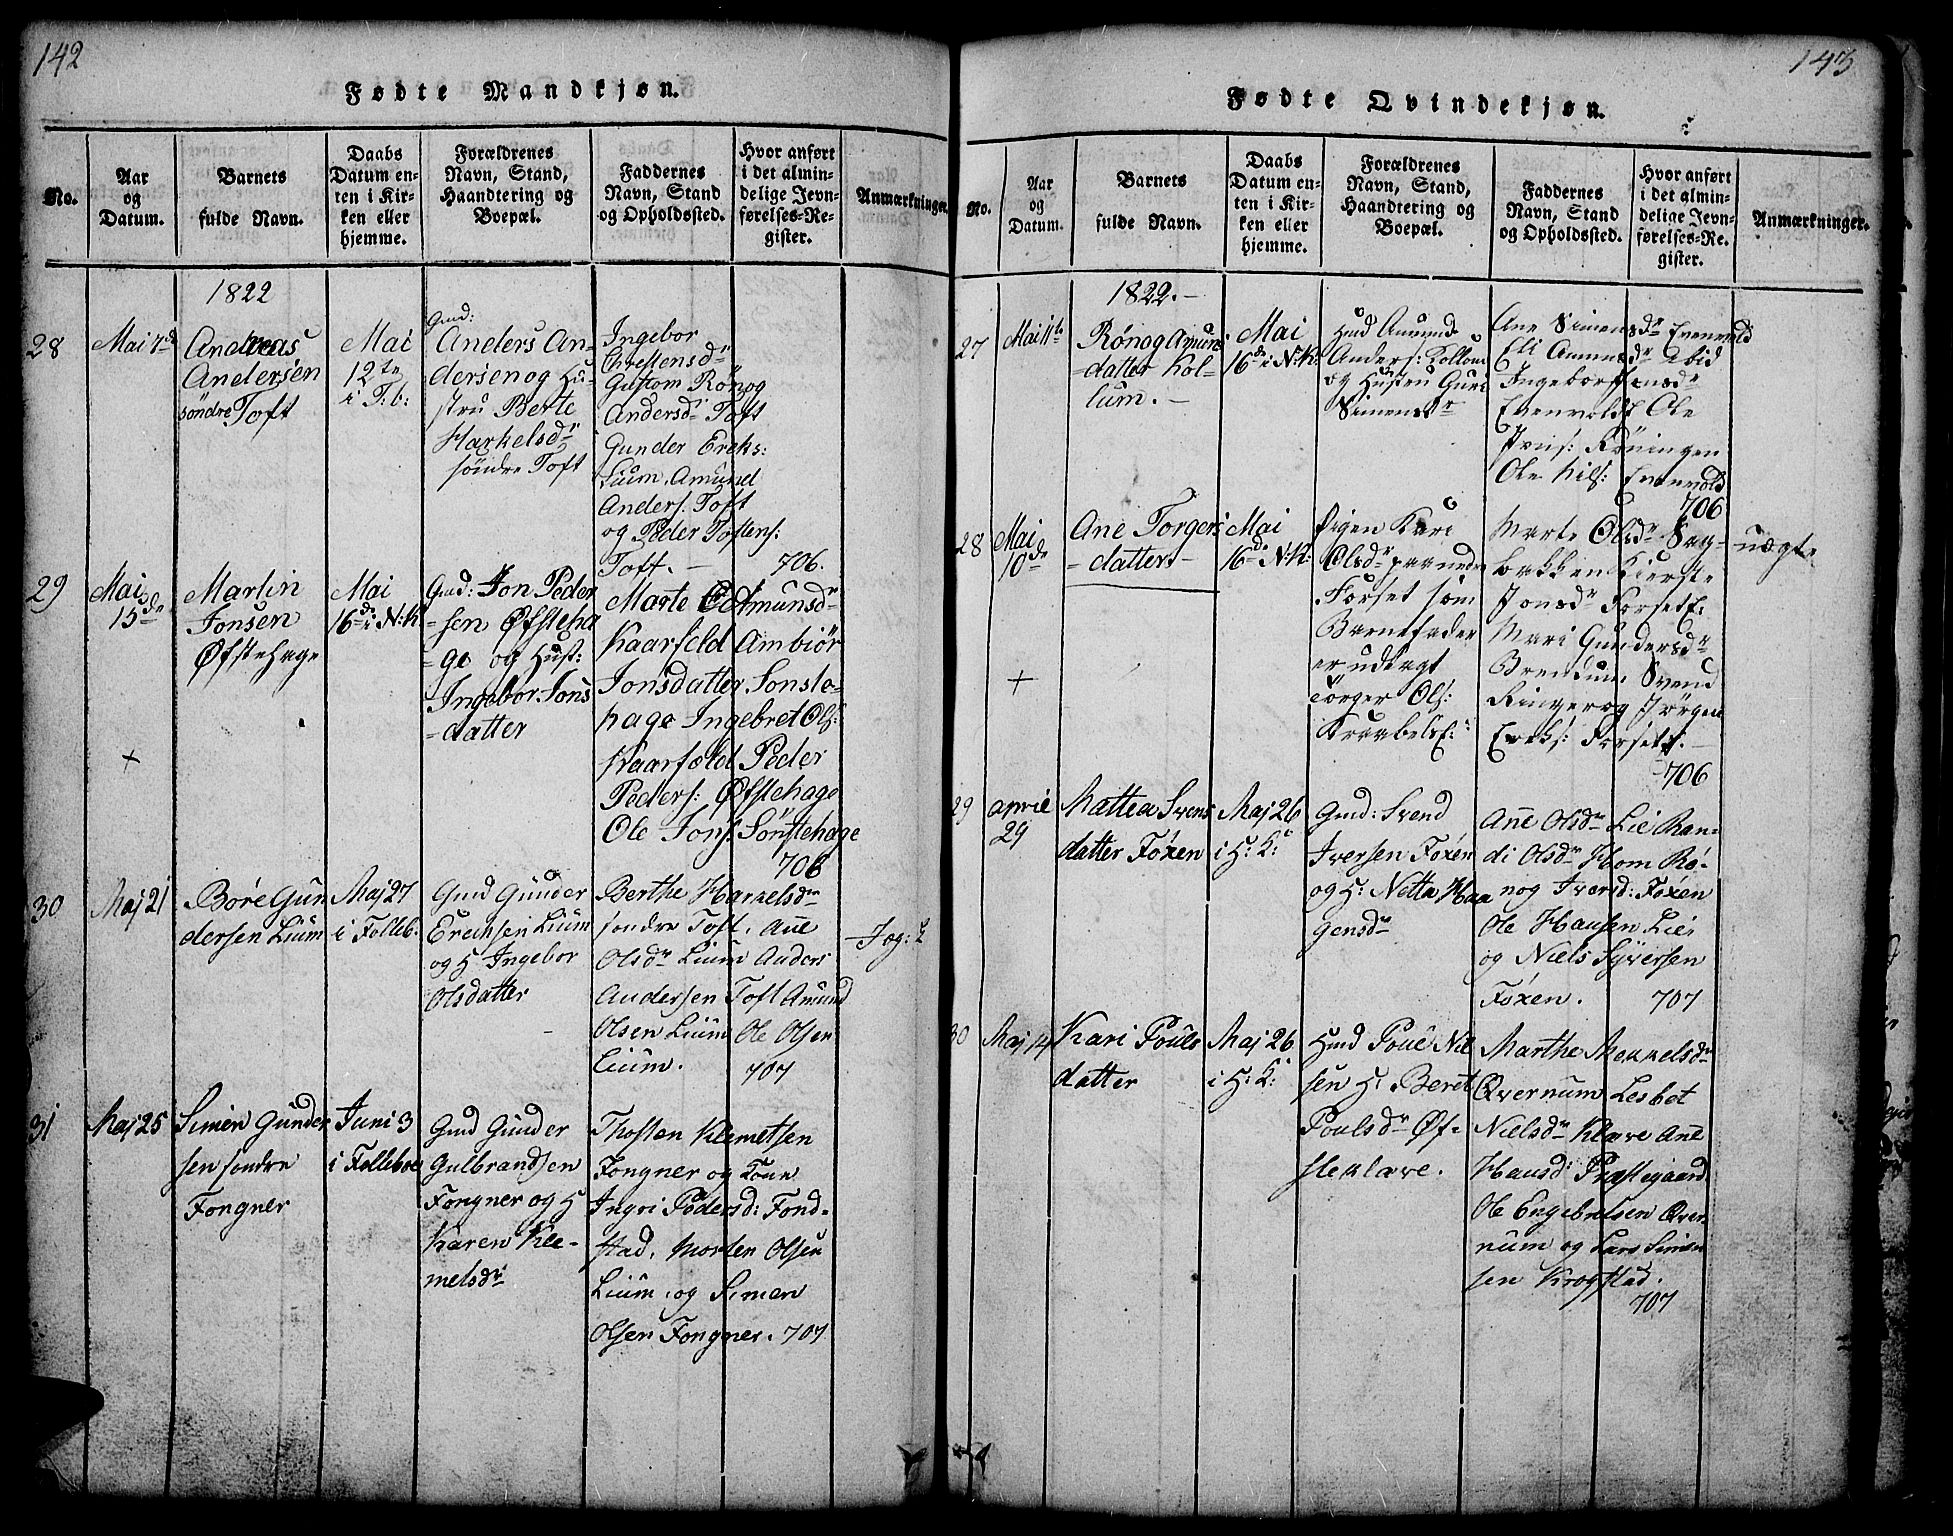 142
Fødte Mandkjøn.
No.
Aar
og
Datum.
Barnets
fulde Navn.
Daabs
Datum en-
ten i Kir-
ken eller
hjemme.
Forældrenes
Navn, Stand,
Haandtering og
Boepæl.
Faddernes
Navn, Stand
og Opholdssted.
Hvor anført
i det almin-
delige Jevn-
førelses-Re-
gister.
Anmærkninger
1822
28
Mai 7de
Andreas
Andersen
söndre Toft
Mai
12te
i F:b:
Gmd:
Anders An-
dersen og Hu-
stru Berte
Harkelsdr
söndre Toft
Ingebor
Chrestensdr
Gustom Rönog
Andersdr Toft
Gunder Ereks:
Lium. Amund
Anders: Toft
og Peder Tostens:
Toft. — 706.
29
Mai
15de
+
Martin
Jonsen
Øfstehage
Mai
16de i N:K
Gmd: Jon Peder
-sen Øfsteha
-ge og Hust:
Ingebor Jons
-datter
Marte Edmunsdr
Kaarfeld Ambiör
Jonsdatter Sonste-
hage Ingebret Ols:
Kaarfæld Peder
Peders: Øfstehage
Ole Jons: Sönstehage
706
30
Maj 21
Böre Gun
dersen Lium
Maj 27
i Folleb.
Gmd Gunder
Erichsen Lium
og H Ingebor
Olsdatter
Berthe Harkelsdr
söndre Toft, Ane
Olsdr Lium Anders
Andersen Toft Amund
Olsen Lium Ole Olsen
Lium. 707
31
Maj 25
Simen Gunder
sen söndre
Fongner
Juni 3
i Folleboe
Gmd Gunder
Gulbrandsen
Fongner og H
Karen Kle-
metsdr
Thosten Klemetsen
Fongner og Kone
Ingri Pedersd: Fond-
stad, Morten Olsen
Lium, og Simen
Olsen Fongner. 707
143
Fødte Qvindekjøn.
No.
Aar
og
Datum.
Barnets
fulde Navn.
Daabs
Datum en-
ten i Kir-
ken eller
hjemme.
Forældrenes
Navn, Stand,
Haandtering og
Boepæl.
Faddernes
Navn, Stand
og Opholdssted.
Hvor anført
i det almin-
delige Jevn-
førelses-Re-
gister.
Anmærkninger.
1822.—
27
Mai 11te
Rönog Amuns
-datter Kol-
lum.—
Mai
16de i N:K:
Hmd Amund
Anders: Kollum
og Hustru Guri
Simensdr
Ane Simensdr Evenvold
Eli Amunsdr ibid
Ingebor Jensdr
Evenvold Ole
Jens: Röningen
Ole Nils: Evenvold
706
28
Mai
10de
+
Ane Torgers
-datter—
Mai
16de N:K:
Pigen Kari
Olsdr
Forset som
Barnefader
er udlagt
Torger Ols:
Marte Olsdr Sag-
bakken Kierste
Jonsdr Forset.
Mari Gundersdr
Brendum Svend
Ringer og Jörgen
Ereks: Forset.—
706
uægte
29
april
29
Mattea Svens
datter Foxen
Maj 26
i H: K:
Gmd: Svend
Iversen Foxen
og H: Netta Haa
gensdr
Ane Olsdr Lie Ran-
di Olsdr Hom Rö-
nog Iversd: Foxen
Ole Hansen Lie,
og Niels Syversen
Foxen. 707
30
Maj 14
Kari Pouls
datter
Maj 26
i H: K:
Hmd Poul Niel
sen H: Beret
Poulsdr Øf-
steklæve.
Marthe Mekkelsdr
Qvernum Lesbet
Nielsdr Klæve Ane
Hansd: Præstegaard
Ole Engebretsen Qver-
num og Lars Simen
sen Krogstad.
707